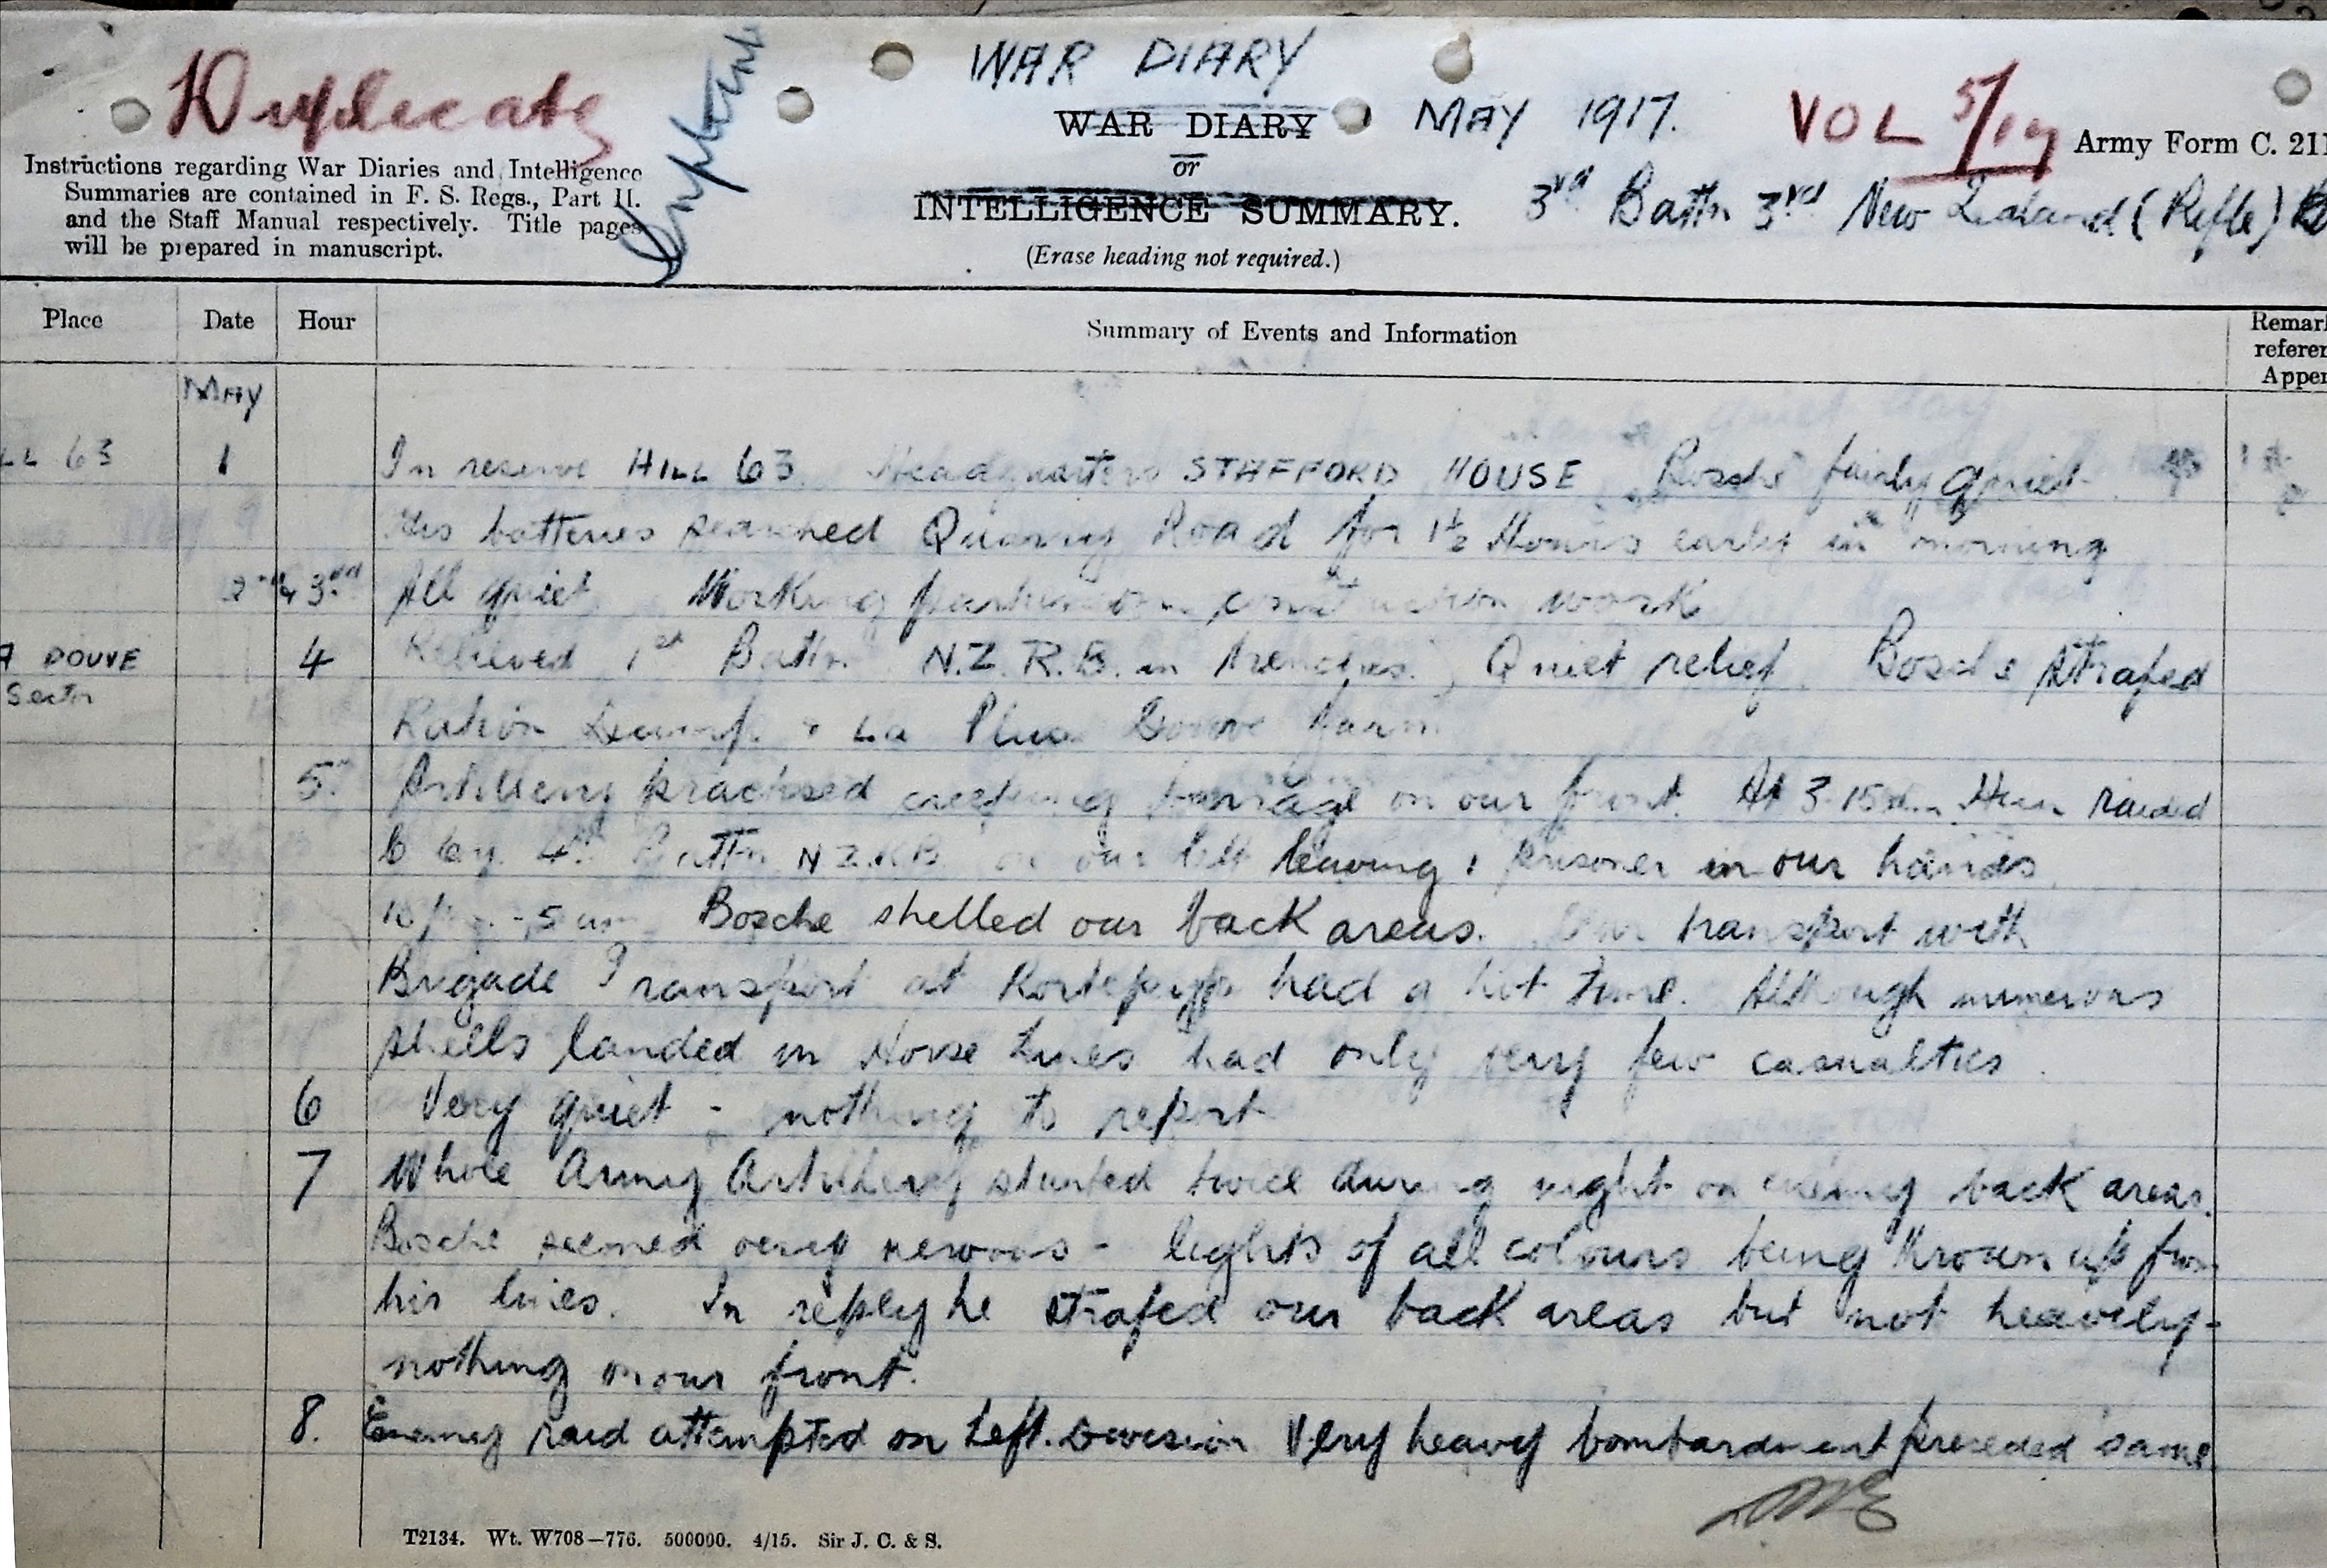 Duplicate
WAR DIARY
MAY 1917.
VOL 5/17
Army Form C. 211
Instructions regarding War Diaries and Intelligence
Summaries are contained in F. S. Regs., Part II.
and the Staff Manual respectively. Title pages
will be prepared in manuscript.
WAR DIARY
or
INTELLIGENCE SUMMARY.
(Erase heading not required.)
3rd Battn 3rd New Zealand (Rifle)
Place Date Hour Summary of Events and Information Remar
referen
Appen
MAY
LL 63 1 In reserve HILL 63. Headquarters STAFFORD HOUSE Bosche fairly quiet.
His batteries searched Quarry Road for 1½ Hours early in morning
2nd & 3rd All quiet Working parties on construction work
A DOUVE 4 Relieved 1st Battn N.Z.R.B. in trenches. Quiet relief. Bosche strafed
Sector
Ration Dump & La Plus Douve farm
5. Artillery practised creeping barrage on our front. At 3.15 Hun raided
Coy. 4th Battn N.Z.R.B. on our left leaving 1 prisoner in our hands.
10 pm - 5 am Bosche shelled our back areas. Our transport with
Brigade Transport at Kortepyp had a hot time. Although numerous
shells landed in Horse Lines had only very few casualties.
6 Very quiet - nothing to report
7 Whole Army Artillery stunted twice during night on enemy back areas.
Bosche seemed very nervous - lights of all colours being thrown up from
his lines. In reply he strafed our back areas but not heavily -
nothing on our front.
8. Enemy raid attempted on Left Division Very heavy bombardment preceded same.
T2134. Wt. W708—776. 500000. 4/15. Sir J. C. & S.